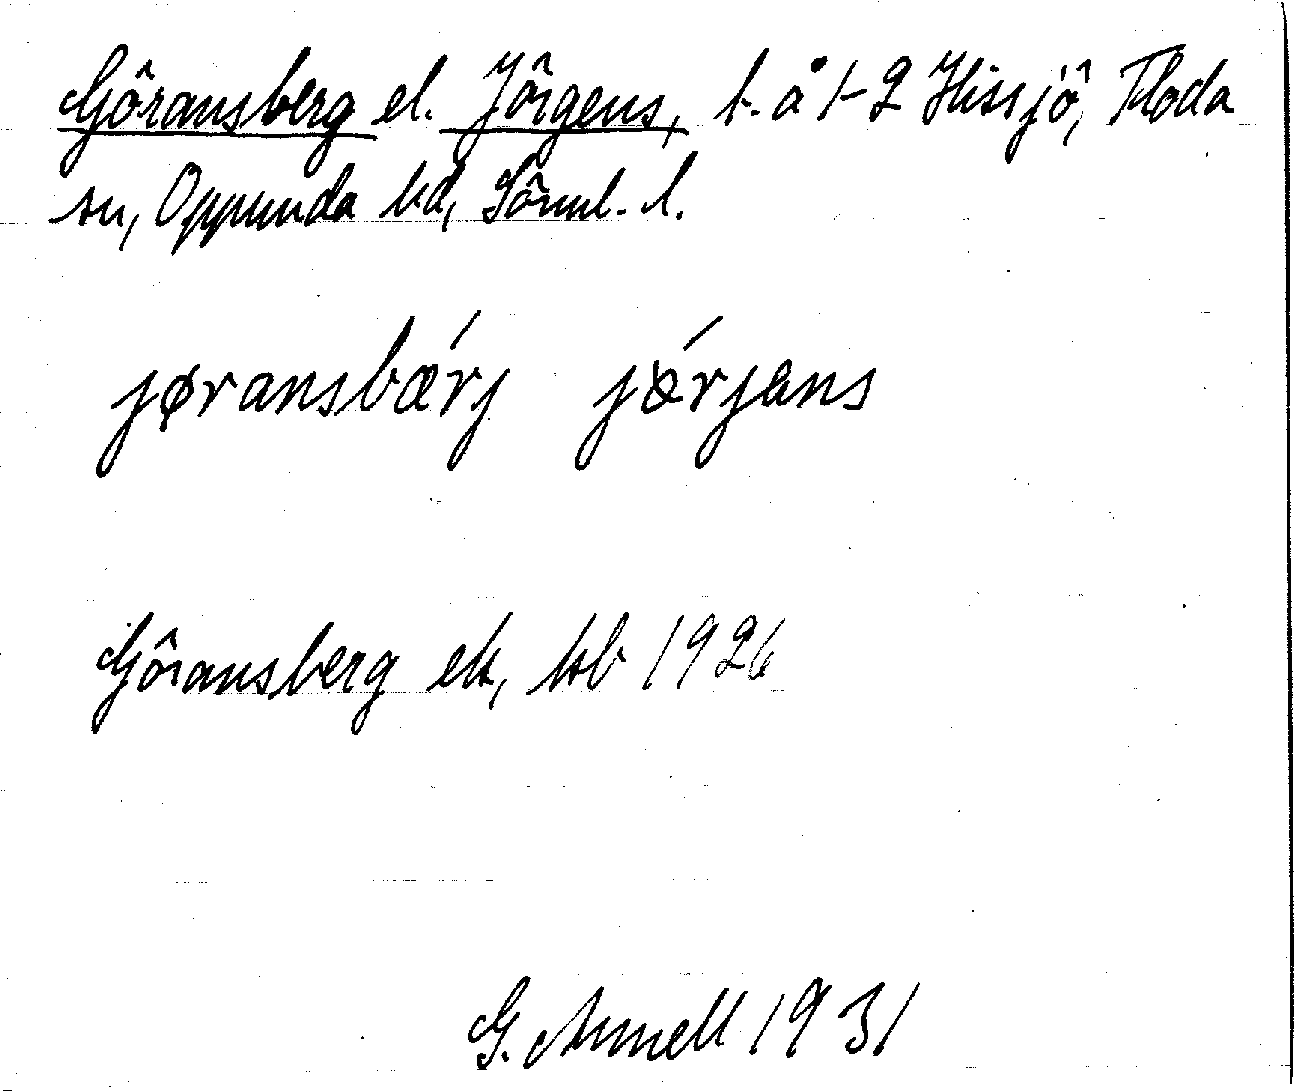 Göransberg el. Jörgens, t. å 1-2 Hissjö, Floda
sn, Oppunda hd, Sörml. l.
jøransbǽrj jǿrjans
Göransberg ek, hsb 1926
G. Annell 1931